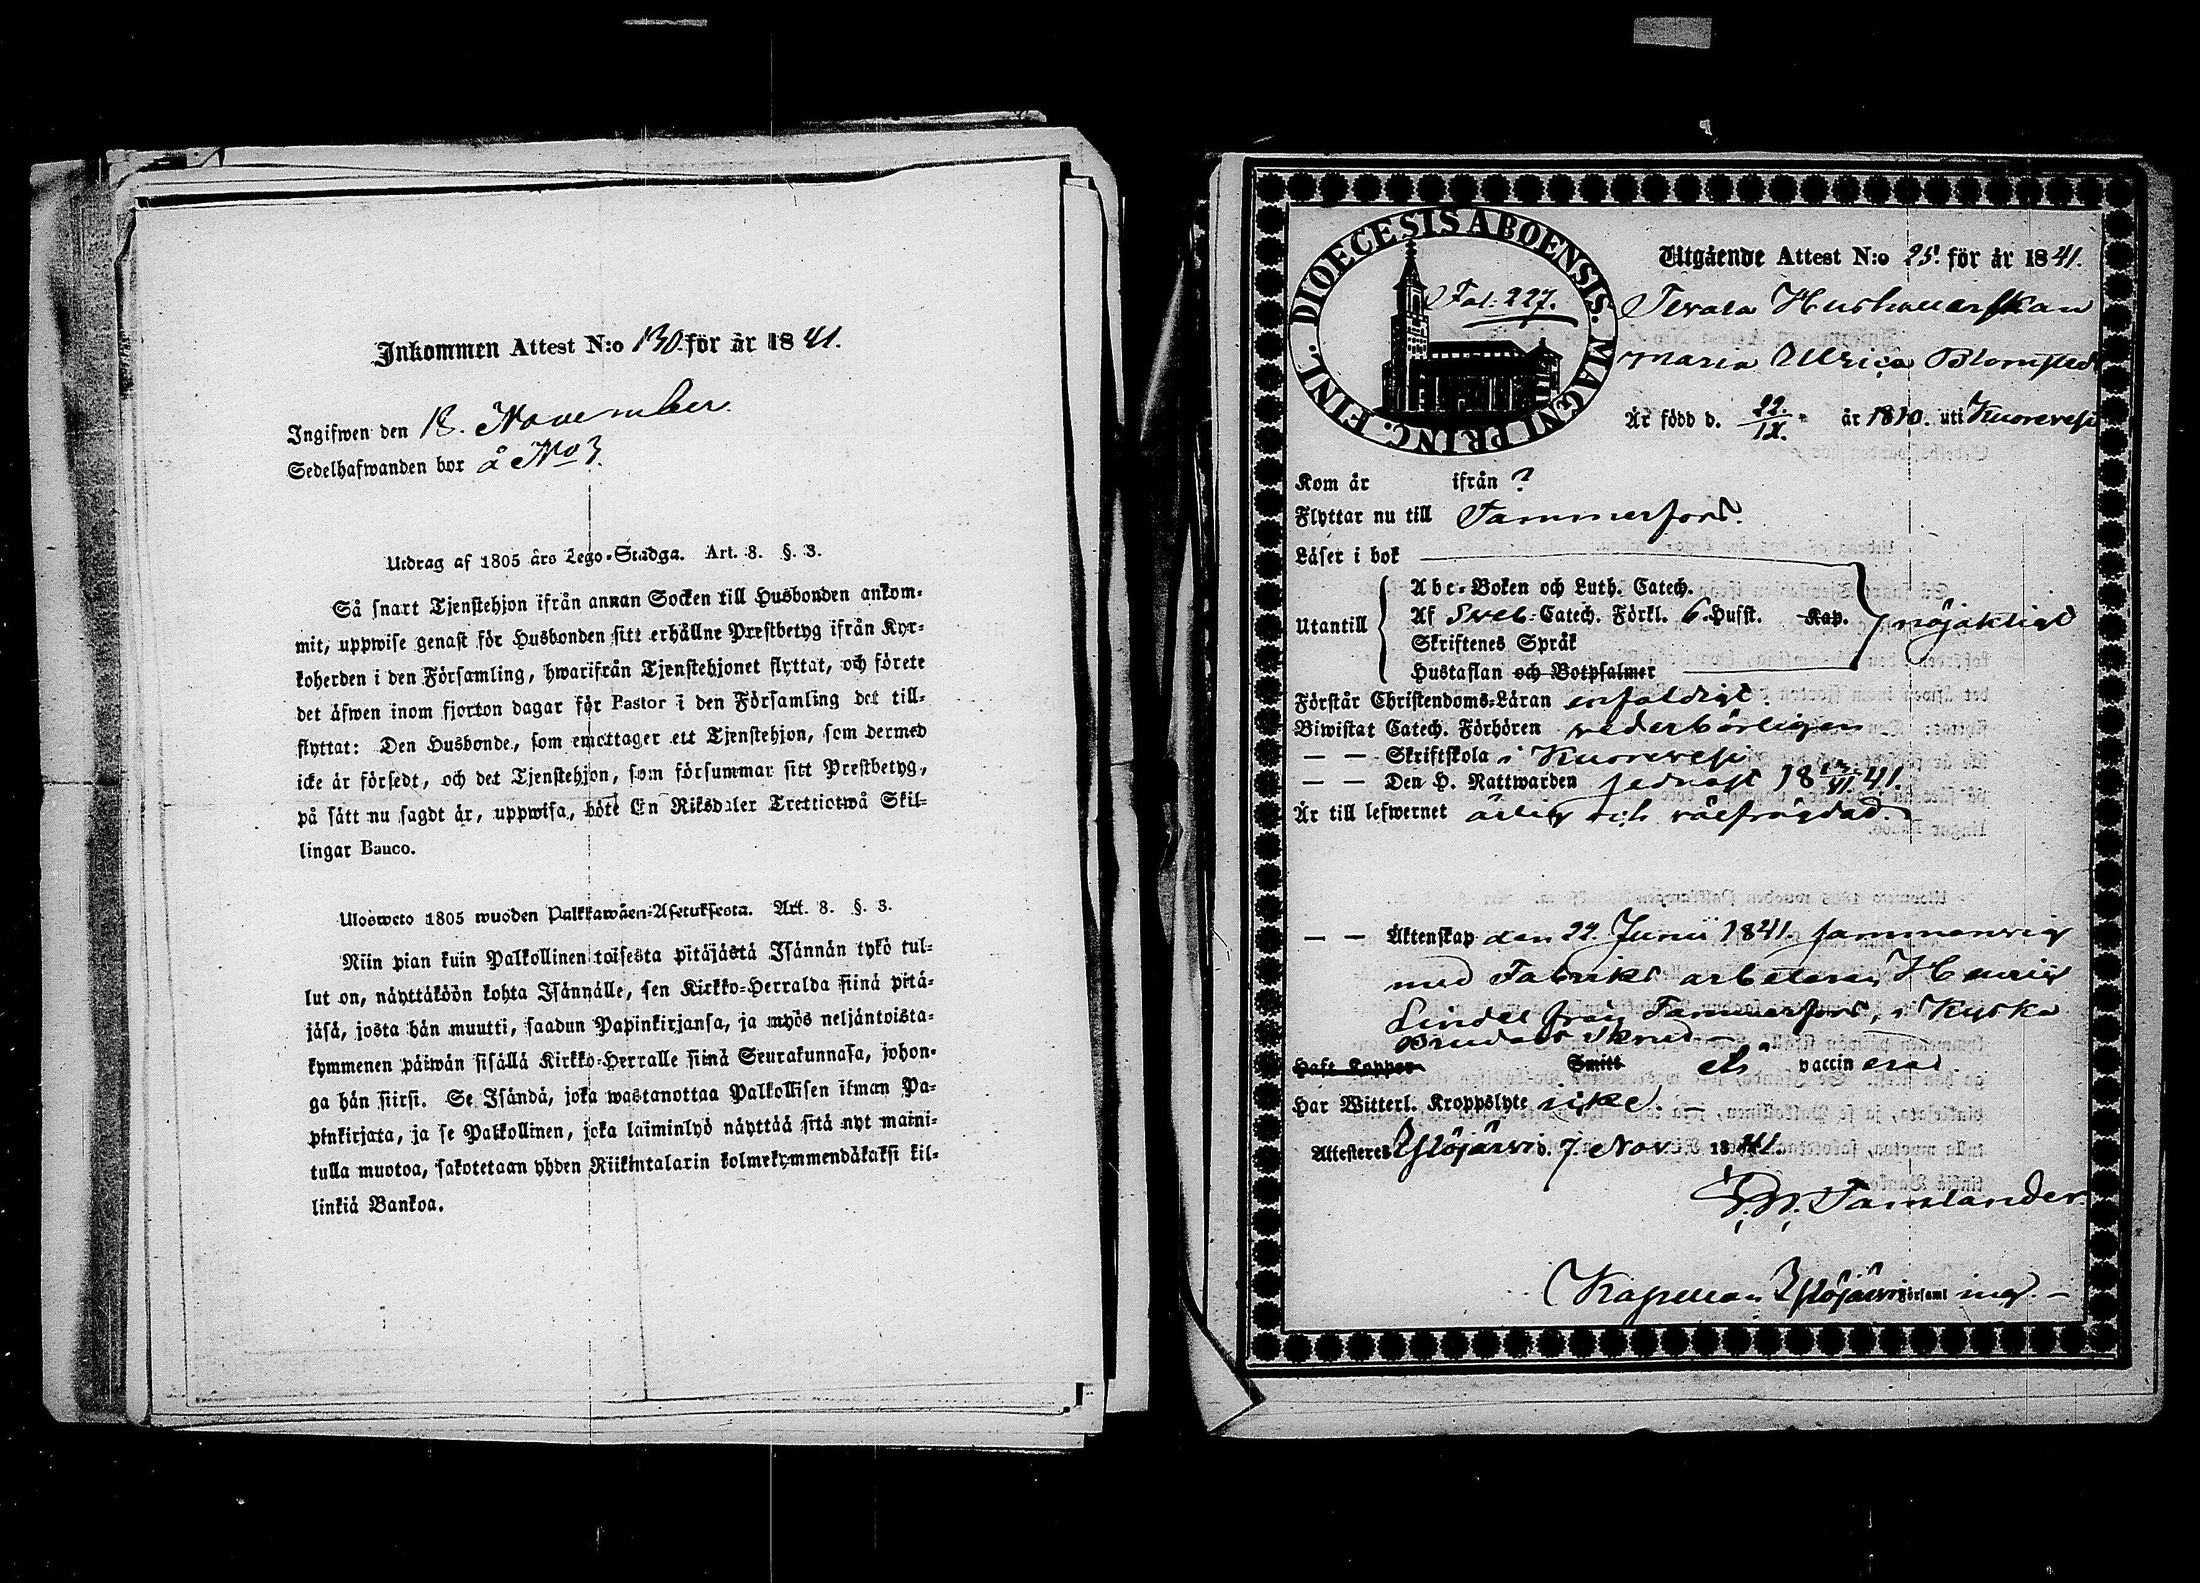 Inkommen Attest N:o 130. för år 1841.
Ingifwen den 18. November.
Sedelhafwanden bor å No 3.
Utdrag af 1805 års Lego-Stadga. Art. 8. §. 3.
Så snart Tjenstehjon ifrån annan Socken till Husbonden ankom-
mit, uppwise genast för Husbonden sitt erhållne Prestbetyg ifrån Kyr-
koherden i den Församling, hwarifrån Tjenstehjonet flyttat, och förete
det äfwen inom fjorton dagar för Pastor i den Församling det till-
flyttat: Den Husbonde, som emottager ett Tjenstehjon, som dermed
icke är försedt, och det Tjenstehjon, som försummar sitt Prestbetyg,
på sätt nu sagdt är, uppwisa, böte En Riksdaler Trettiotwå Skil-
lingar Banco.
Ulosweto 1805 wuoden Palkkawäen-Asetuksesta. Art. 8. §. 3.
Niin pian kuin Palkollinen toisesta pitäjästä Isännän tykö tul-
lut on, näyttäköön kohta Isännälle, sen Kirkko-Herralda siinä pitä-
jäsä, josta hän muutti, saadun Papinkirjansa, ja myös neljäntoista-
kymmenen päiwän sisällä Kirkko-Herralle siinä Seurakunnasa, johon-
ga hän siirsi. Se Isändä, joka wastanottaa Palkollisen ilman Pa-
pinkirjata, ja se Palkollinen, joka laiminlyö näyttää sitä nyt maini-
tulla muotoa, sakotetaan yhden Riikintalarin kolmekymmendäkaksi kil-
linkiä Bankoa.
DIOECESIS ABOENSIS. MAGNI PRINC. FINL.
Fol. 227.
Utgående Attest N:o 25. för år 1841.
Maria Ulrica Blomsted
Är född d. 22./IX. år 1810. uti Kuorevesi
Kom år ifrån ?
Flyttar nu till Tammerfors.
Läser i bok
Utantill
Abc-Boken och Luth. Catech.
Af Sveb-Catech. Förkl. 6. Hufst. Kap.
Skriftenes Språk
Hustaflan och Botpsalmer
nöjaktigt
Förstår Christendoms-Läran enfaldigt.
Biwistat Catech. Förhören vederbörligen
— — Skriftskola i Kuorevesi
— — Den H. Nattwarden sednast 18 41.
Är till lefwernet ärlig och välfrägdad.
— — Äktenskap den 24. Junii 1841. sammanvigd
med Fabriks arbetaren Henric
Lindel från Tammerfors, i Kyska
Brudars skrud —
Haft Koppor Smitt vaccinerad
Har Witterl. Kroppslyte icke. —
Attesteres Ylöjärvi d. 7. Nov. 1841.
Tamlander.
Kapellan i Ylöjärvi Församling. —